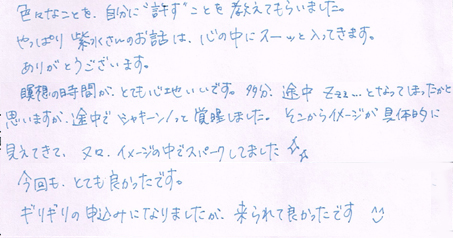 色々なことを、自分に"許す"ことを教えてもらいました。
やっぱり紫水さんのお話は、心の中にスーッと入ってきます。
ありがとうございます。
瞑想の時間が、とても心地いいです。多分、途中 Zzz…となってしまったかと
思いますが、途中でシャキーン!って覚醒しました。そこからイメージが具体的に
見えてきて、イメージの中でスパークしてました
今回も、とても良かったです。
ギリギリの申込みになりましたが、来られて良かったです